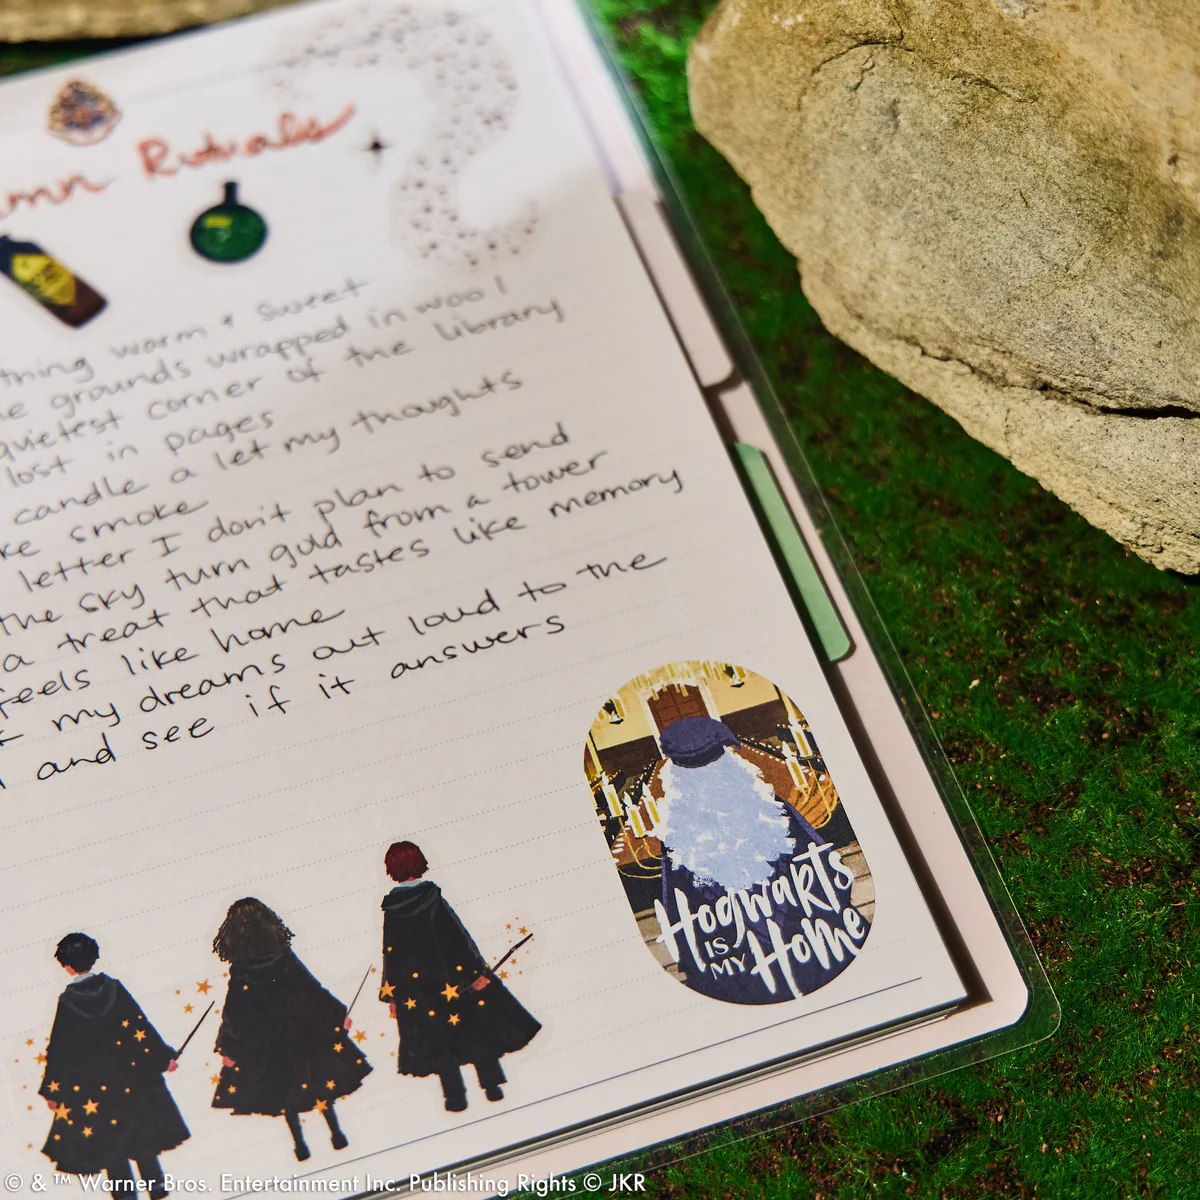 Rituals
thing warm & sweet
grounds wrapped in wool
quietest corner of the library
lost in pages
candle & let my thoughts
smoke
letter I don't plan to send
the sky turn gold from a tower
a treat that tastes like memory
feels like home
my dreams out loud to the
and see if it answers
Hogwarts
IS
MY Home
© & ™ Warner Bros. Entertainment Inc. Publishing Rights © JKR